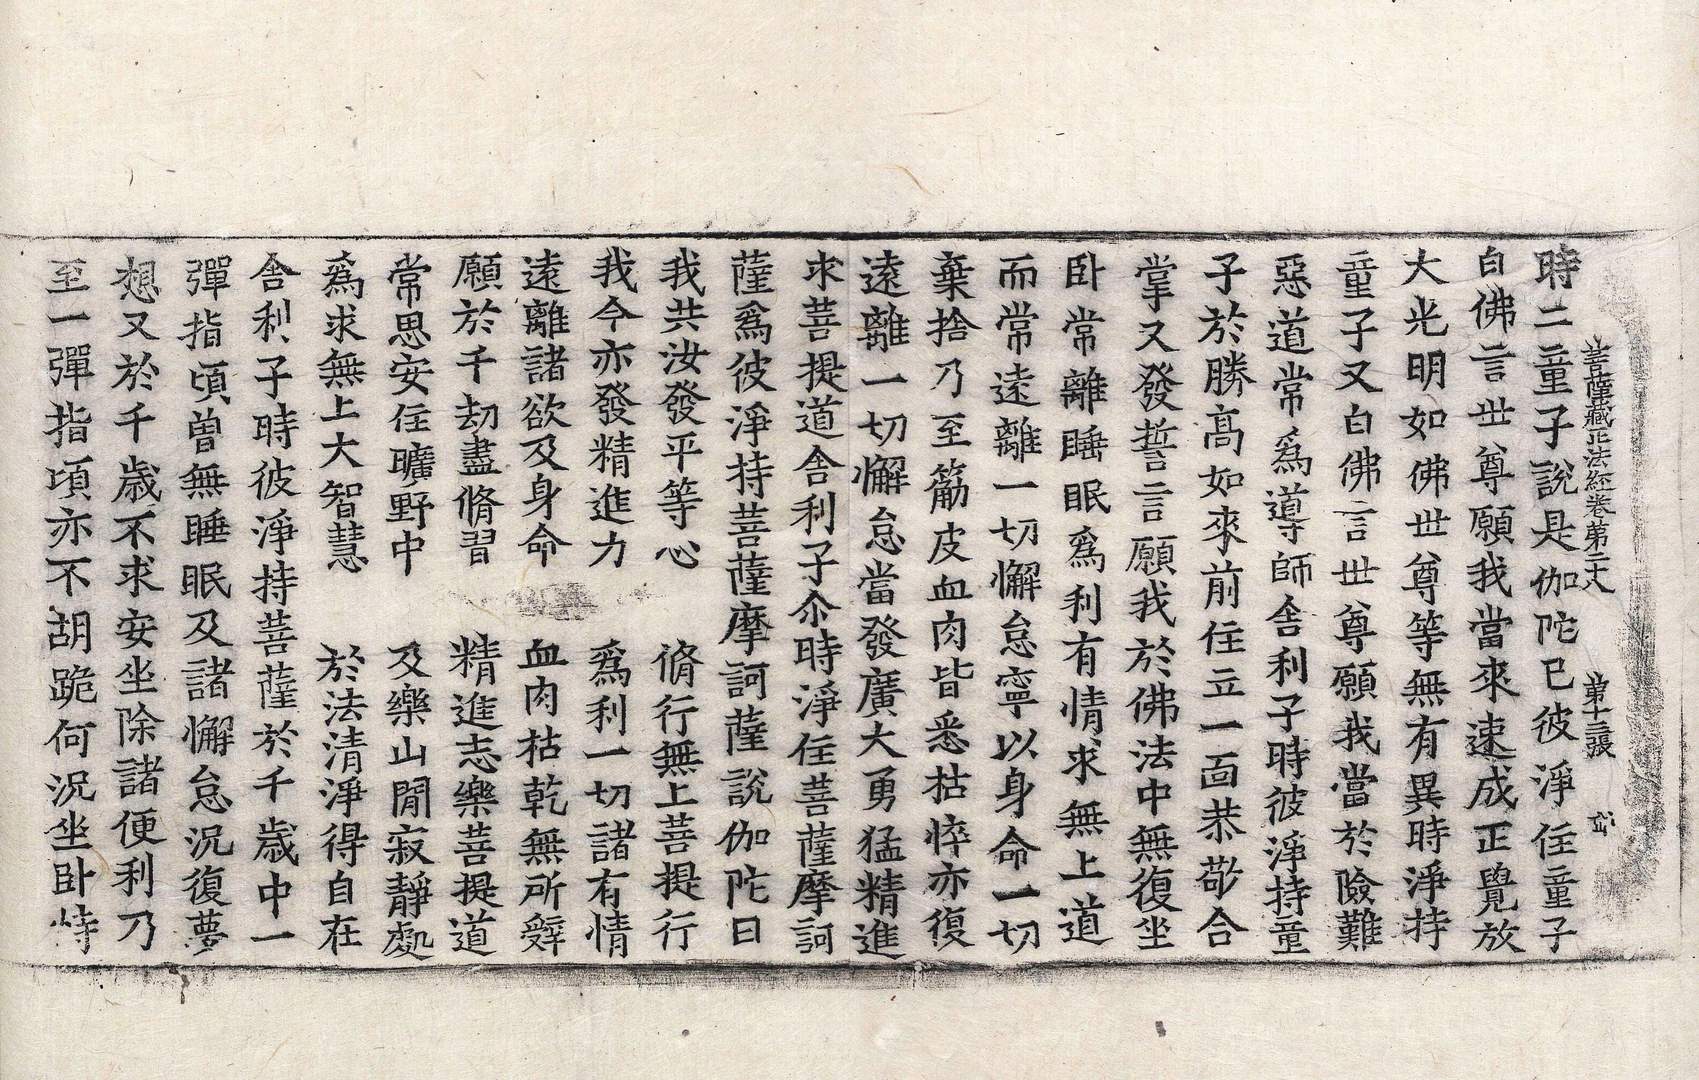 菩薩藏正法經卷第二十 第十三張
時二童子說是伽陀已彼淨住童子
白佛言世尊願我當來速成正覺放
大光明如佛世尊等無有異時淨持
童子又白佛言世尊願我當於險難
惡道常爲導師舍利子時彼淨持童
子於勝高如來前住立一面恭敬合
掌又發誓言願我於佛法中無復坐
卧常離睡眠爲利有情求無上道
而常遠離一切懈怠寧以身命一切
棄捨乃至筋皮血肉皆悉枯悴亦復
遠離一切懈怠當發廣大勇猛精進
求菩提道舍利子尒時淨住菩薩摩訶
薩爲彼淨持菩薩摩訶薩說伽陀曰
我共汝發平等心 脩行無上菩提行
我今亦發精進力 爲利一切諸有情
遠離諸欲及身命 血肉枯乾無所辤
願於千劫盡脩習 精進志樂菩提道
常思安住曠野中 及樂山閒寂靜處
爲求無上大智慧 於法清淨得自在
舍利子時彼淨持菩薩於千歲中一
彈指頃曾無睡眠及諸懈怠況復夢
想又於千歲不求安坐除諸便利乃
至一彈指頃亦不胡跪何況坐卧時